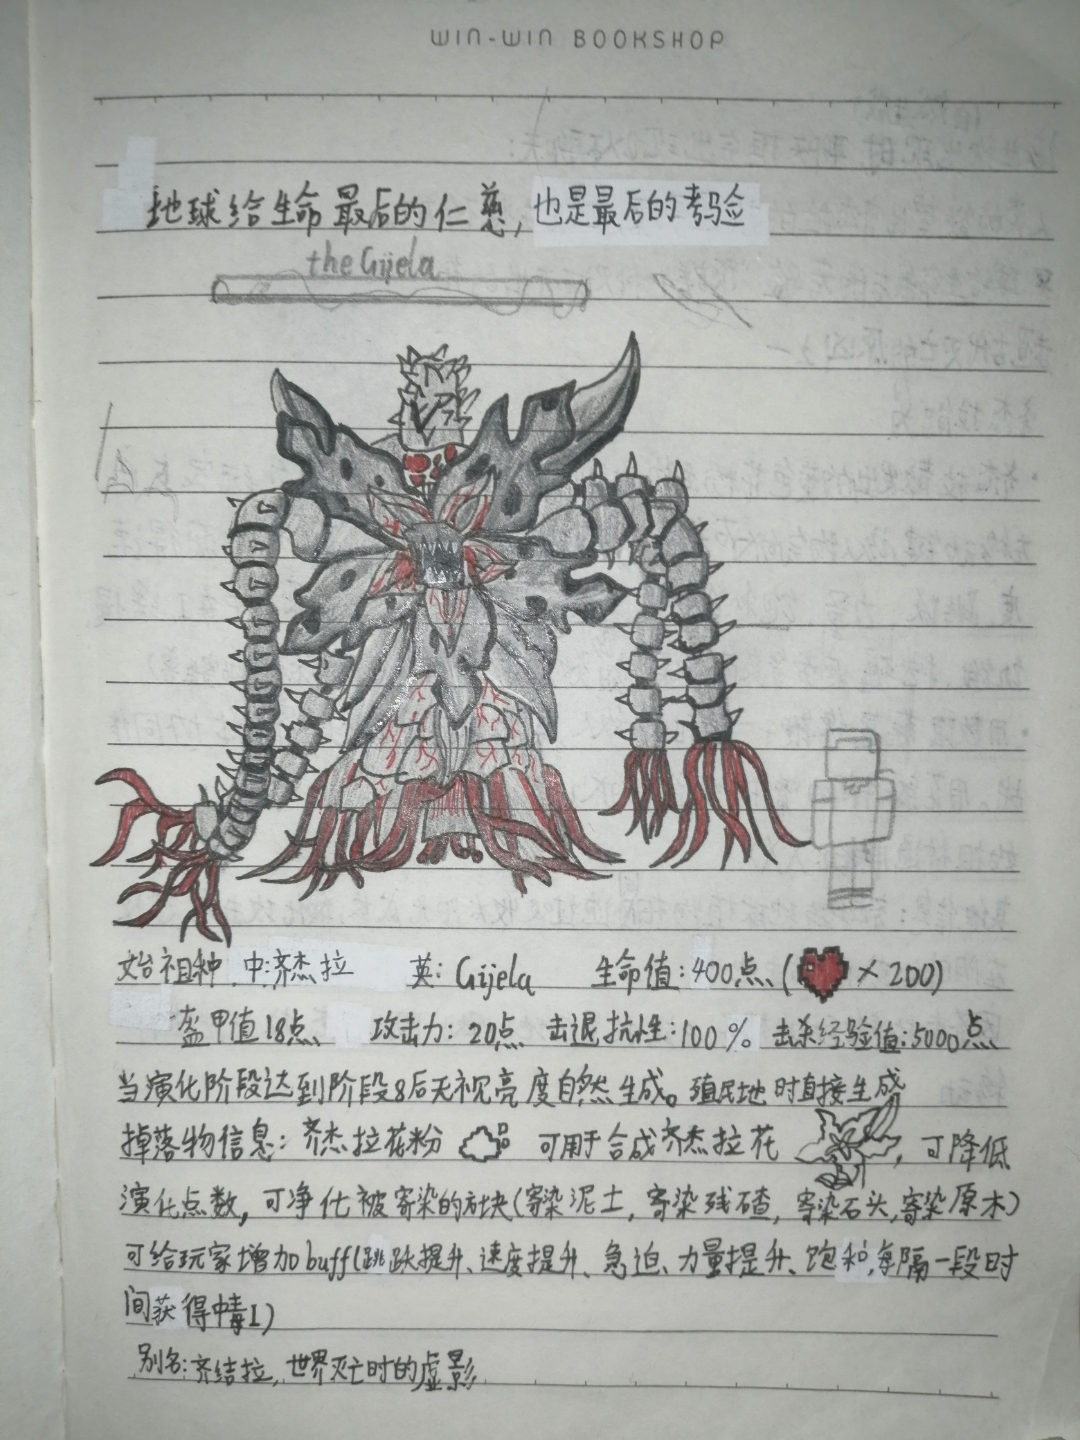 WIN-WIN BOOKSHOP
地球给生命最后的仁慈,也是最后的考验
the Gijela
始祖种 中:齐杰拉 英: Gijela 生命值:400点(×200)
盔甲值18点 攻击力: 20点 击退抗性:100% 击杀经验值:5000点
当演化阶段达到阶段8后无视亮度自然生成。殖民地时直接生成
掉落物信息: 齐杰拉花粉 可用于合成齐杰拉花 ,可降低
演化点数,可净化被寄染的方块(寄染泥土,寄染残碴,寄染石头,寄染原木)
可给玩家增加buff(跳跃提升、速度提升、急迫、力量提升、饱和,每隔一段时
间获得中毒I)
别名:齐结拉,世界灭亡时的虚影